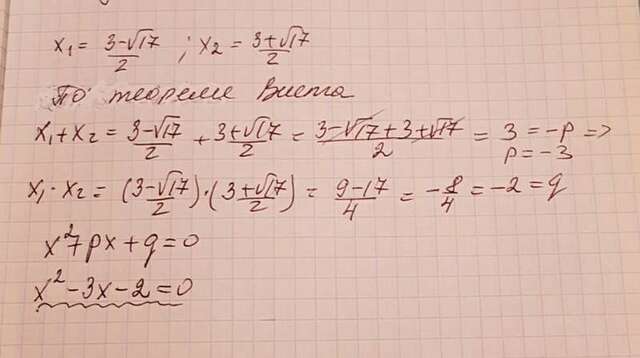 x₁ = (3-√17)/2 ; x₂ = (3+√17)/2
По теореме Виета
x₁+x₂ = (3-√17)/2 + (3+√17)/2 = (3-√17+3+√17)/2 = 3 = -p =>
p = -3
x₁·x₂ = ((3-√17)/2)·((3+√17)/2) = (9-17)/4 = -8/4 = -2 = q
x²+px+q=0
x²-3x-2=0